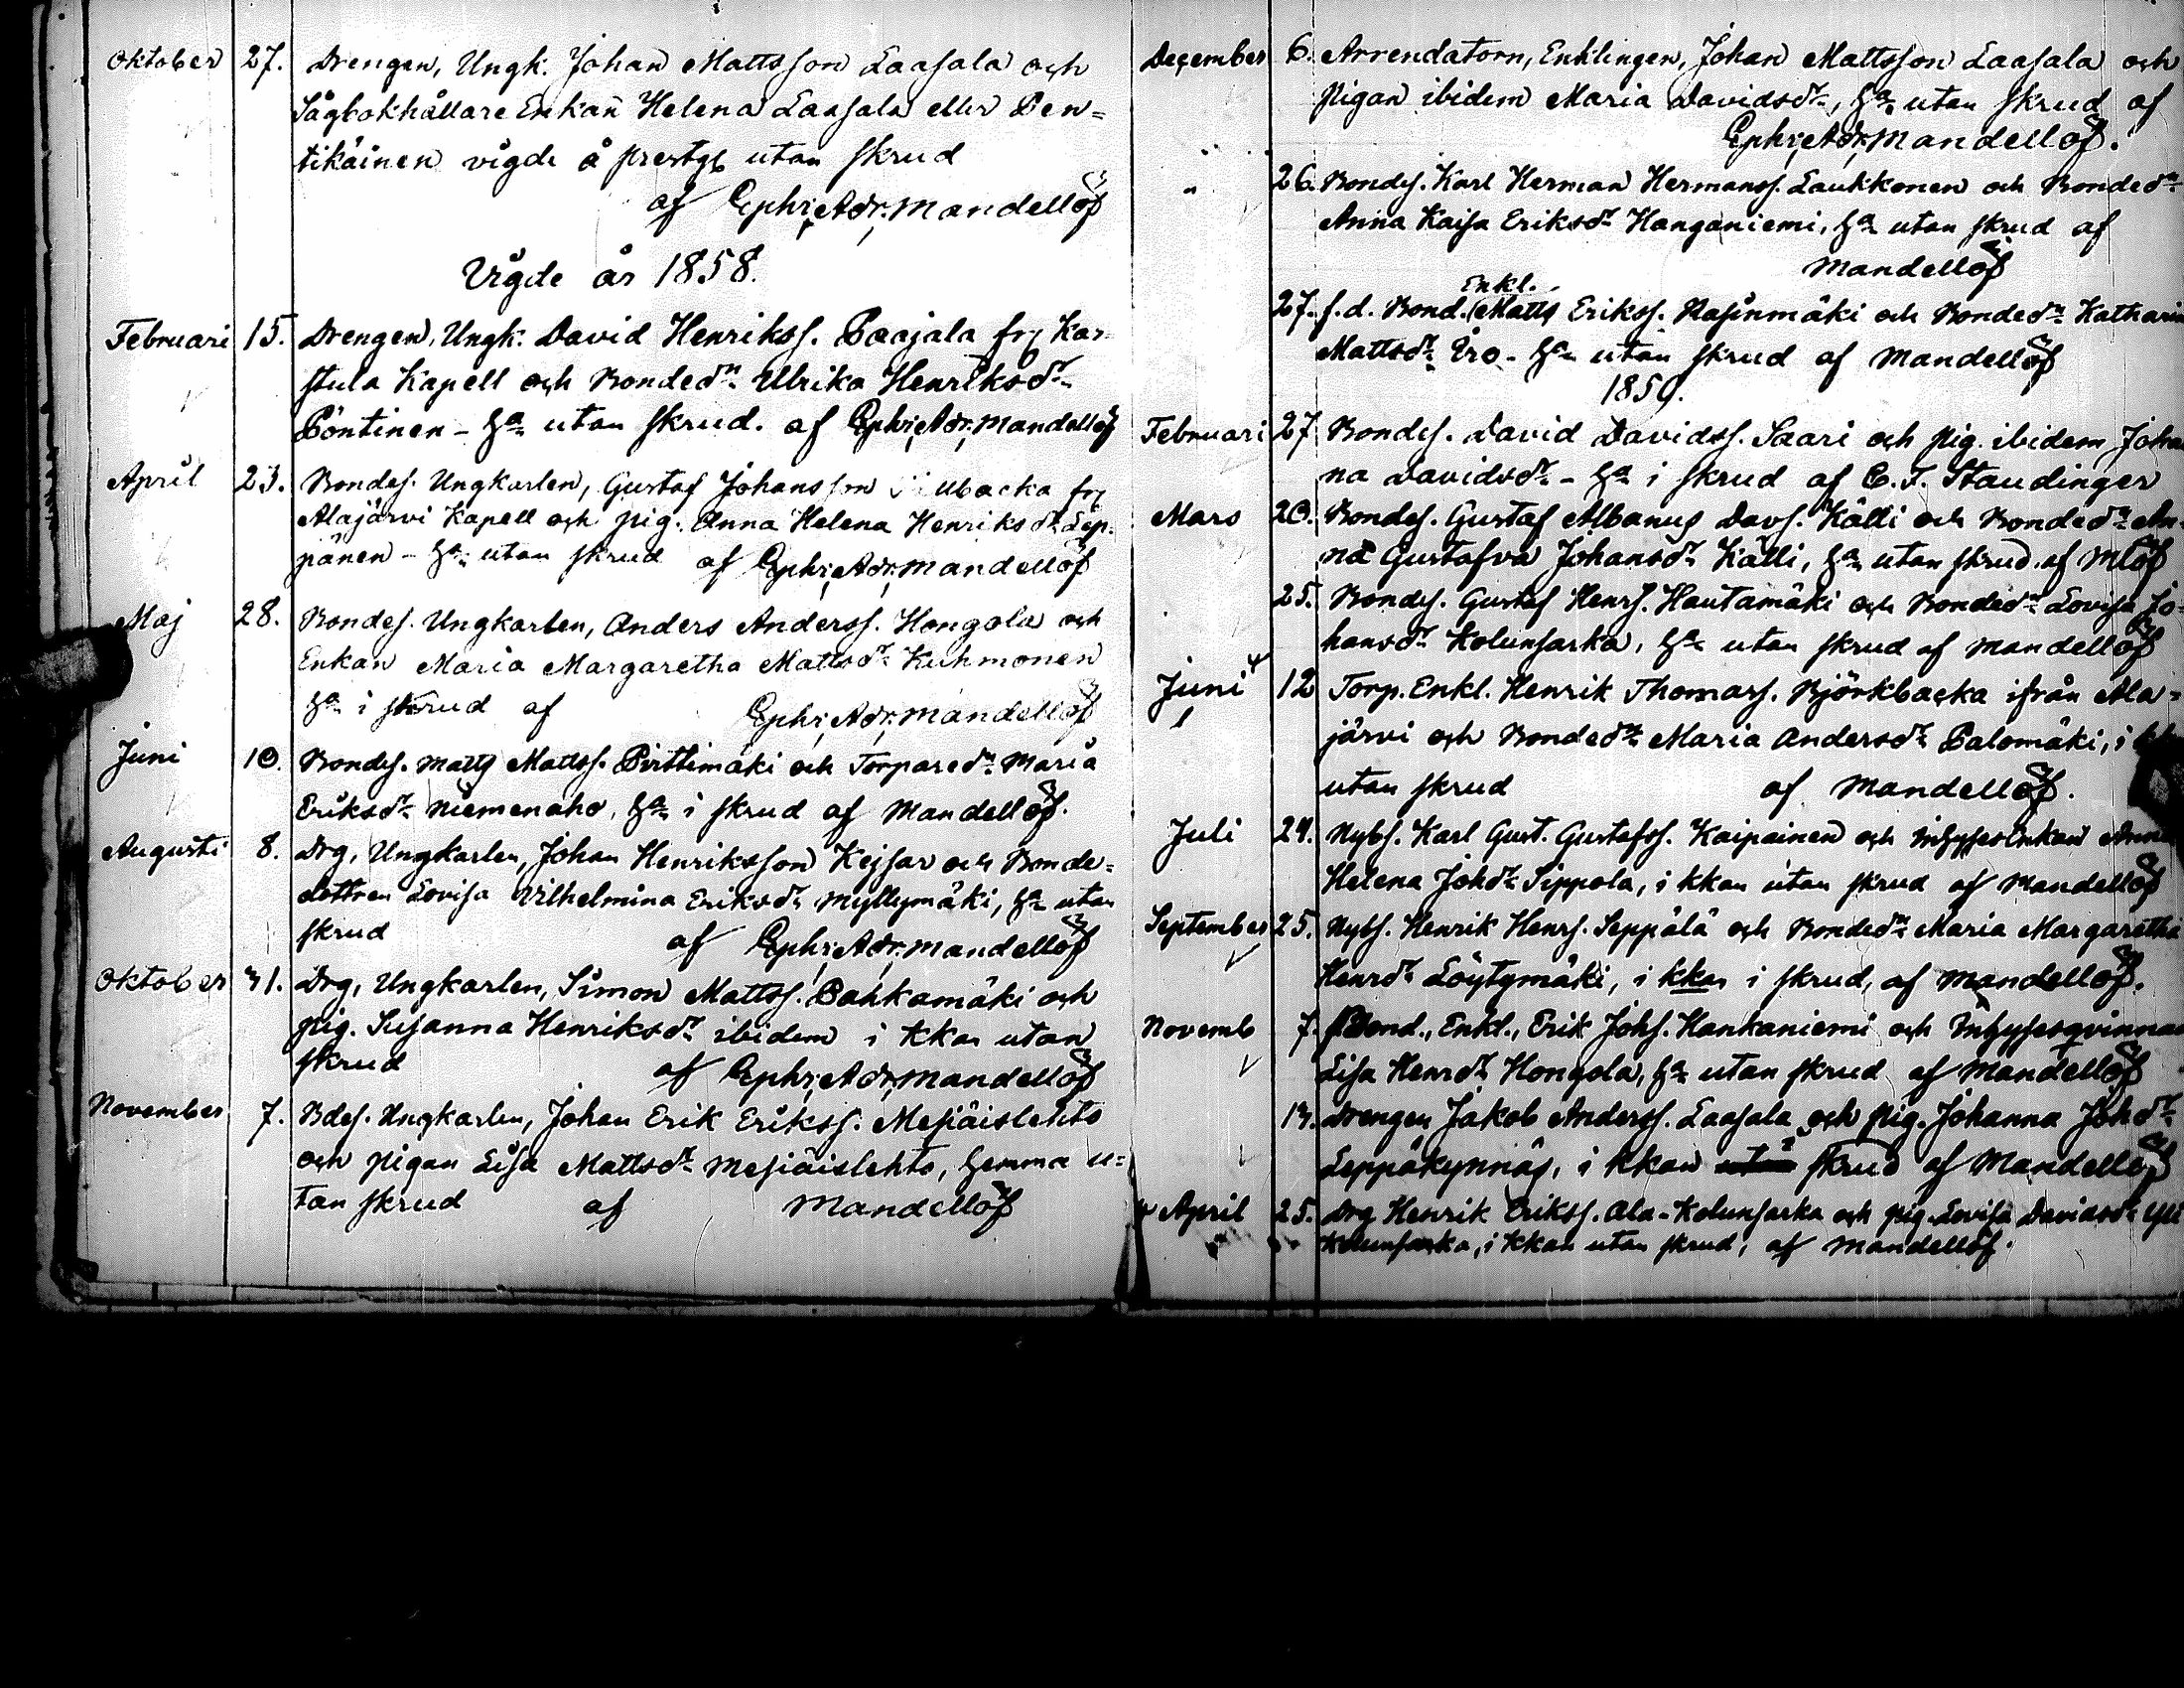 Oktober 27. Drengen, Ungk. Johan Mattsson Laasala och
Sågbokhållare Enkan Helena Laasala eller Pen=
tikäinen vigde å prestg. utan skrud
af Ephr. Adr. Mandellöf
Vigde år 1858.
Februari 15. Drengen, Ungk. David Henrikss. Paajala fr. Kar-
stula Kapell och Bondedn. Ulrika Henriksdr.
Pöntinen - ha utan skrud. af Ephr. Adr. Mandellöf
April 23. Bondes. Ungkarlen, Gustaf Johansson ubacka fr.
Alajärvi Kapell och pig. Anna Helena Henriksdr. Lep-
pänen - ha utan skrud af Ephr. Adr. Mandellöf
Maj 28. Bondes. Ungkarlen, Anders Anderss. Hongola och
Enkan Maria Margaretha Mattsdr. Kuhmonen
ha i skrud af Ephr. Adr. Mandellöf
Juni 10. Bondes. Matts Mattss. Pirttimäki och Torparedn. Maria
Eriksdr. Niemenaho, ha i skrud af Mandellöf.
Augusti 8. Drg, Ungkarlen, Johan Henriksson Kejsar och Bonde=
dottren Lovisa Vilhelmina Eriksdr. Myllymäki, ha utan
skrud af Ephr. Adr. Mandellöf
Oktober 31. Drg, Ungkarlen, Simon Mattss. Pahkamäki och
pig. Susanna Henriksdr. ibidem i kkan utan
skrud af Ephr. Adr. Mandellöf
November 7. Bdes. Ungkarlen, Johan Erik Erikss. Mesiäislehto
och pigan Lisa Mattsdr. Mesiäislehto, hemma u=
tan skrud af Mandellöf
December 6. Arrendatorn, Enklingen, Johan Mattsson Laasala och
pigan ibidem Maria Davidsdr., ha utan skrud af
Ephr. Adr. Mandellöf.
" 26. Bondes. Karl Herman Hermanss. Laukkonen och Bondedn.
Anna Kaisa Eriksdr. Hanganiemi, ha utan skrud af
Mandellöf
Enkl.
27. f.d. Bond. Matts Erikss. Rasinmäki och Bondedn. Katharin
Mattsdr. Iro - ha utan skrud af Mandellöf
1859.
Februari 27 Bondes. David Davidss. Saari och pig. ibidem Johan
na Davidsdr. - ha i skrud af C. F. Staudinger
Mars 20. Bondes. Gustaf Albanus Davs. Källi och Bondedn. An-
na Gustafva Johansdr. Källi, ha utan skrud af Mlöf
25. Bondes. Gustaf Henrs. Hautamäki och Bondedn. Lovisa Jo-
hansdr. Kolunsarka, ha utan skrud af Mandellöf
Juni 12 Torp. Enkl. Henrik Thomass. Björkbacka ifrån Ala=
järvi och Bondedr. Maria Andersdr. Palomäki, i
utan skrud af Mandellöf.
Juli 24. Nybs. Karl Gust. Gustafss. Kaipainen och Inhyses Enkan Anna
Helena Johdr. Sippola, i kkan utan skrud af Mandellöf
September 25. Nybs. Henrik Henrs. Seppälä och Bondedn. Maria Margaretha
Henrdr. Löytymäki, i kkan i skrud, af Mandellöf.
Novemb 7. Bond., Enkl., Erik Johs. Hankaniemi och Inhysesqvinnan
Lisa Henrdr. Hongola, ha utan skrud af Mandellöf
13. Drengen Jakob Anderss. Laasala och pig. Johanna Johdr.
Leppäkynnäs, i kkan utan i skrud af Mandellöf
April 25. Drg Henrik Erikss. Ala-Kolunsarka och pig. Lovisa Davidsdr. Yli
Kolunsarka, i kkan utan skrud, af Mandellöf.